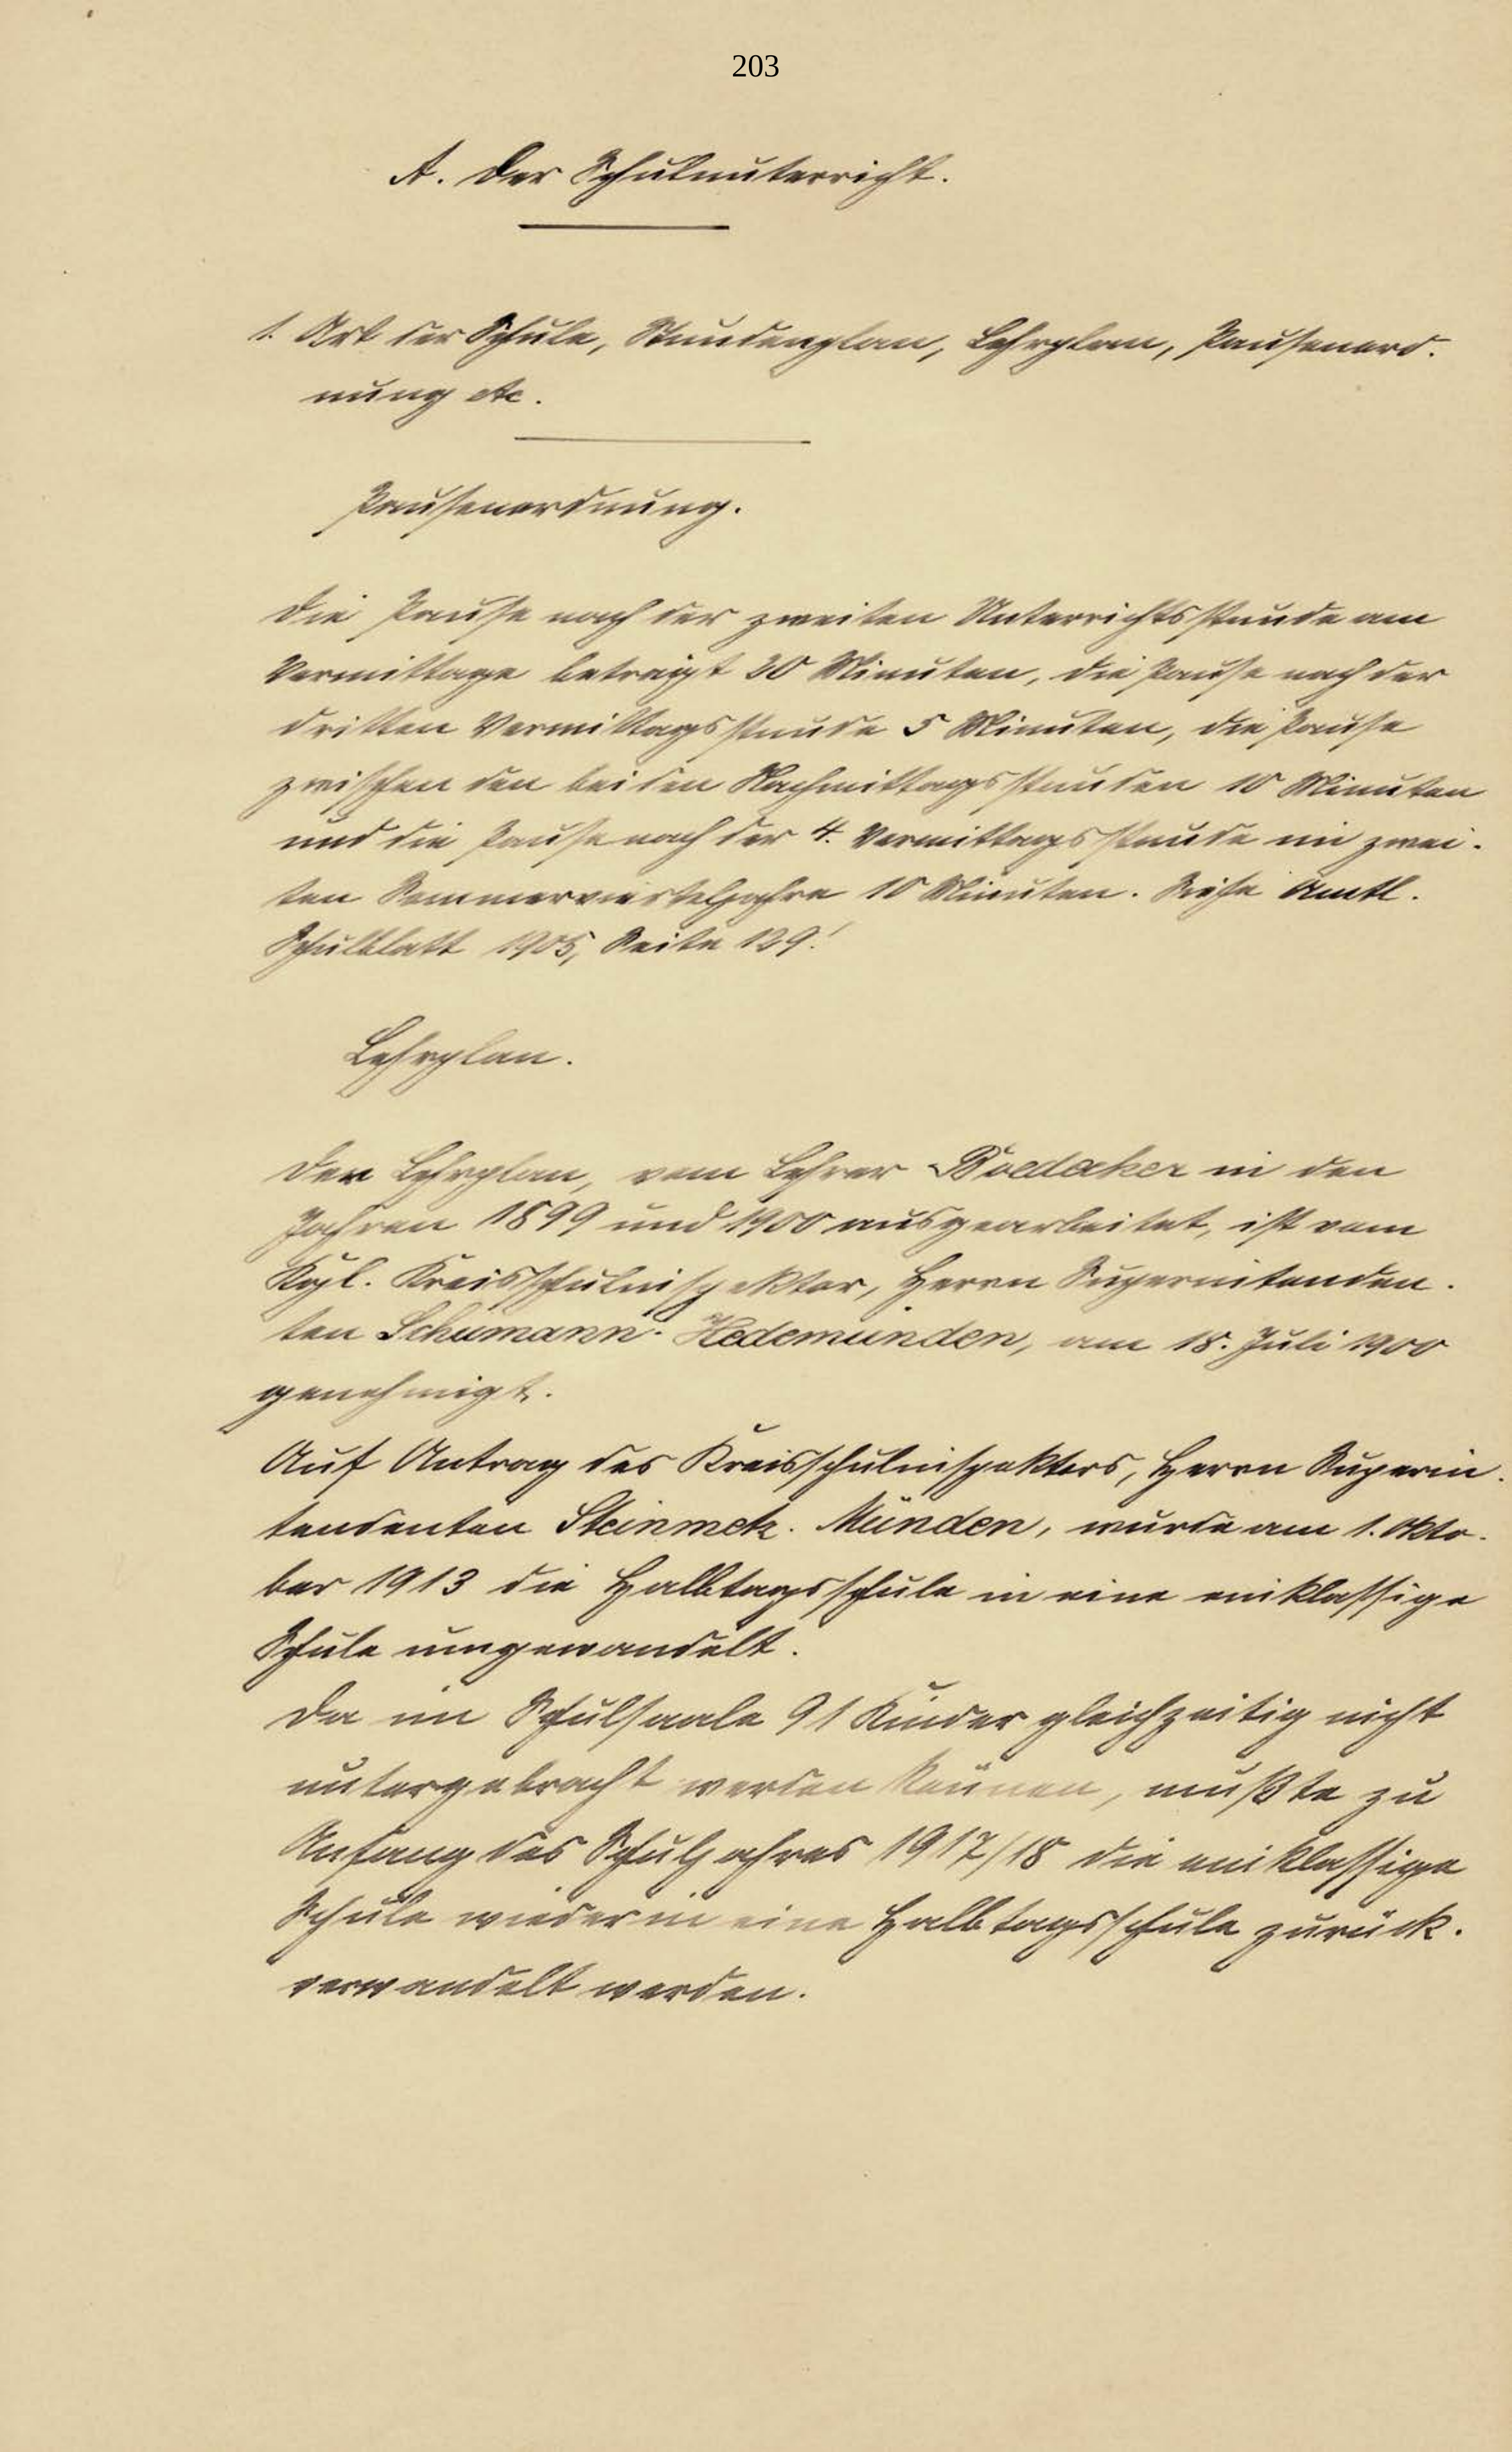 203
A. Der Schulunterricht.
1. Art der Schule, Stundenplan, Lehrplan, Pausenord-
nung etc.
Pausenordnung.
Die Pause nach der zweiten Unterrichtsstunde am
Vormittage beträgt 20 Minuten, die Pause nach der
dritten Vormittagsstunde 5 Minuten, die Pause
zwischen den beiden Nachmittagsstunden 10 Minuten
und die Pause nach der 4. Vormittagsstunde im zwei-
ten Sommervierteljahre 10 Minuten. Siehe Amtl.
Schulblatt 1905, Seite 129!
Lehrplan.
Der Lehrplan, vom Lehrer Boedecker in den
Jahren 1899 und 1900 ausgearbeitet, ist vom
Kgl. Kreisschulinspektor, Herrn Superintenden-
ten Schumann-Hedemünden, am 18. Juli 1900
genehmigt.
Auf Antrag des Kreisschulinspektors, Herrn Superin-
tendenten Steinmetz-Münden, wurde am 1. Okto-
ber 1913 die Halbtagsschule in eine einklassige
Schule umgewandelt.
Da im Schulsaale 91 Kinder gleichzeitig nicht
untergebracht werden können, mußte zu
Anfang des Schuljahres 1917/18 die einklassige
Schule wieder in eine Halbtagsschule zurück-
verwandelt werden.